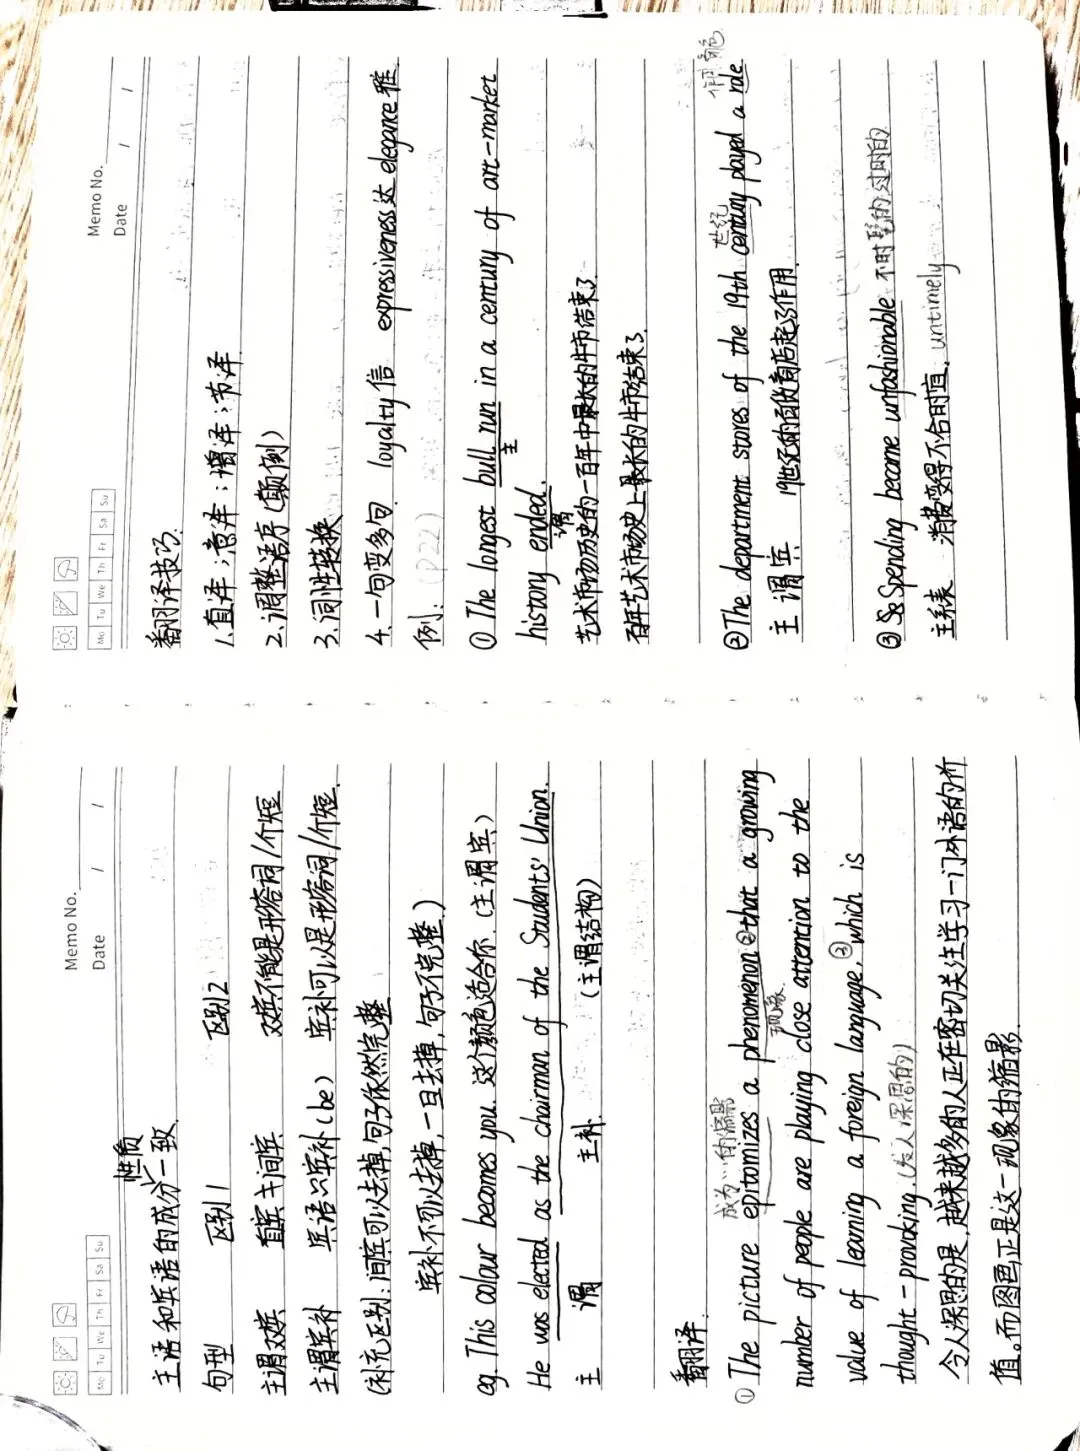 Memo No.
Date / /
Mo Tu We Th Fr Sa Su
性质
主语和宾语的成分一致
句型 区别1 区别2
主谓双宾 直宾≠间宾 双宾不能是形容词/介短
主谓宾补 宾语≈宾补(be) 宾补可以是形容词/介短.
(补充区别:间宾可以去掉,句子依然完整
宾补不可以去掉,一旦去掉,句子不完整.)
eg. This colour becomes you. 这个颜色适合你.(主谓宾)
He was elected as the chairman of the Students' Union.
主 谓 主补. (主谓结构)
翻译.
成为…的缩影
① The picture epitomizes a phenomenon ②that a growing
现象.
number of people are playing close attention to the
value of learning a foreign language, ③which is
thought-provoking.(发人深思的)
令人深思的是,越来越多的人正在密切关注学习一门外语的价
值。而图画正是这一现象的缩影.
Memo No.
Date / /
Mo Tu We Th Fr Sa Su
翻译技巧.
1.直译;意译;增译;节译
2.调整语序(颠倒)
3.词性转换
4.一句变多句. loyalty信 expressiveness达 elegance雅
例:(P22)
① The longest bull run in a century of art-market
主
history ended.
谓
艺术市场历史的一百年中最长的牛市结束了.
百年艺术市场史上最长的牛市结束了.
世纪 角色
②The department stores of the 19th century played a role
主 谓 宾 19世纪的百货商店起了作用.
③ Spending became unfashionable 不时髦的 过时的
主 系 表 消费变得不合时宜. untimely